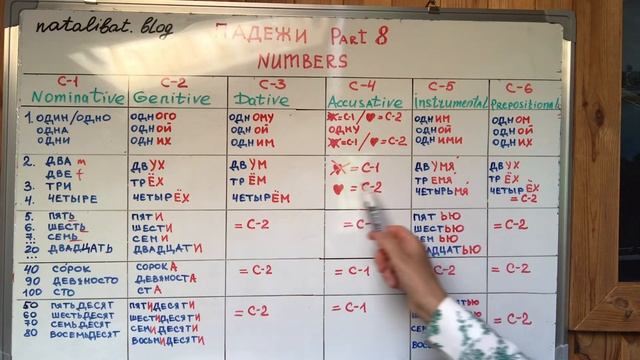 natalibat.blog
ПАДЕЖИ Part 8
NUMBERS
C-1 C-2 C-3 C-4 C-5 C-6
Nominative Genitive Dative Accusative Instrumental Prepositional
1. ОДИН/ОДНО ОДНОГО ОДНОМУ =C-1/ =C-2 ОДНИМ ОДНОМ
ОДНА ОДНОЙ ОДНОЙ ОДНУ ОДНОЙ ОДНОЙ
ОДНИ ОДНИХ ОДНИМ =C-1/ =C-2 ОДНИМИ ОДНИХ
2. ДВА m ДВУХ ДВУМ = C-1 ДВУМЯ ДВУХ
ДВЕ f
3. ТРИ ТРЁХ ТРЁМ = C-2 ТРЕМЯ ТРЁХ
4. ЧЕТЫРЕ ЧЕТЫРЁХ ЧЕТЫРЁМ ЧЕТЫРЬМЯ ЧЕТЫРЁХ
= C-2
5. ПЯТЬ ПЯТИ ПЯТЬЮ
6. ШЕСТЬ ШЕСТИ = C-2 ШЕСТЬЮ = C-2
7. СЕМЬ СЕМИ СЕМЬЮ
...
20 ДВАДЦАТЬ ДВАДЦАТИ
40 СОРОК СОРОКА = C-2 = C-1 = C-2
90 ДЕВЯНОСТО ДЕВЯНОСТА
100 СТО СТА
50 ПЯТЬДЕСЯТ ПЯТИДЕСЯТИ = C-2 = C-1
60 ШЕСТЬДЕСЯТ ШЕСТИДЕСЯТИ = C-2
70 СЕМЬДЕСЯТ СЕМИДЕСЯТИ
80 ВОСЕМЬДЕСЯТ ВОСЬМИДЕСЯТИ